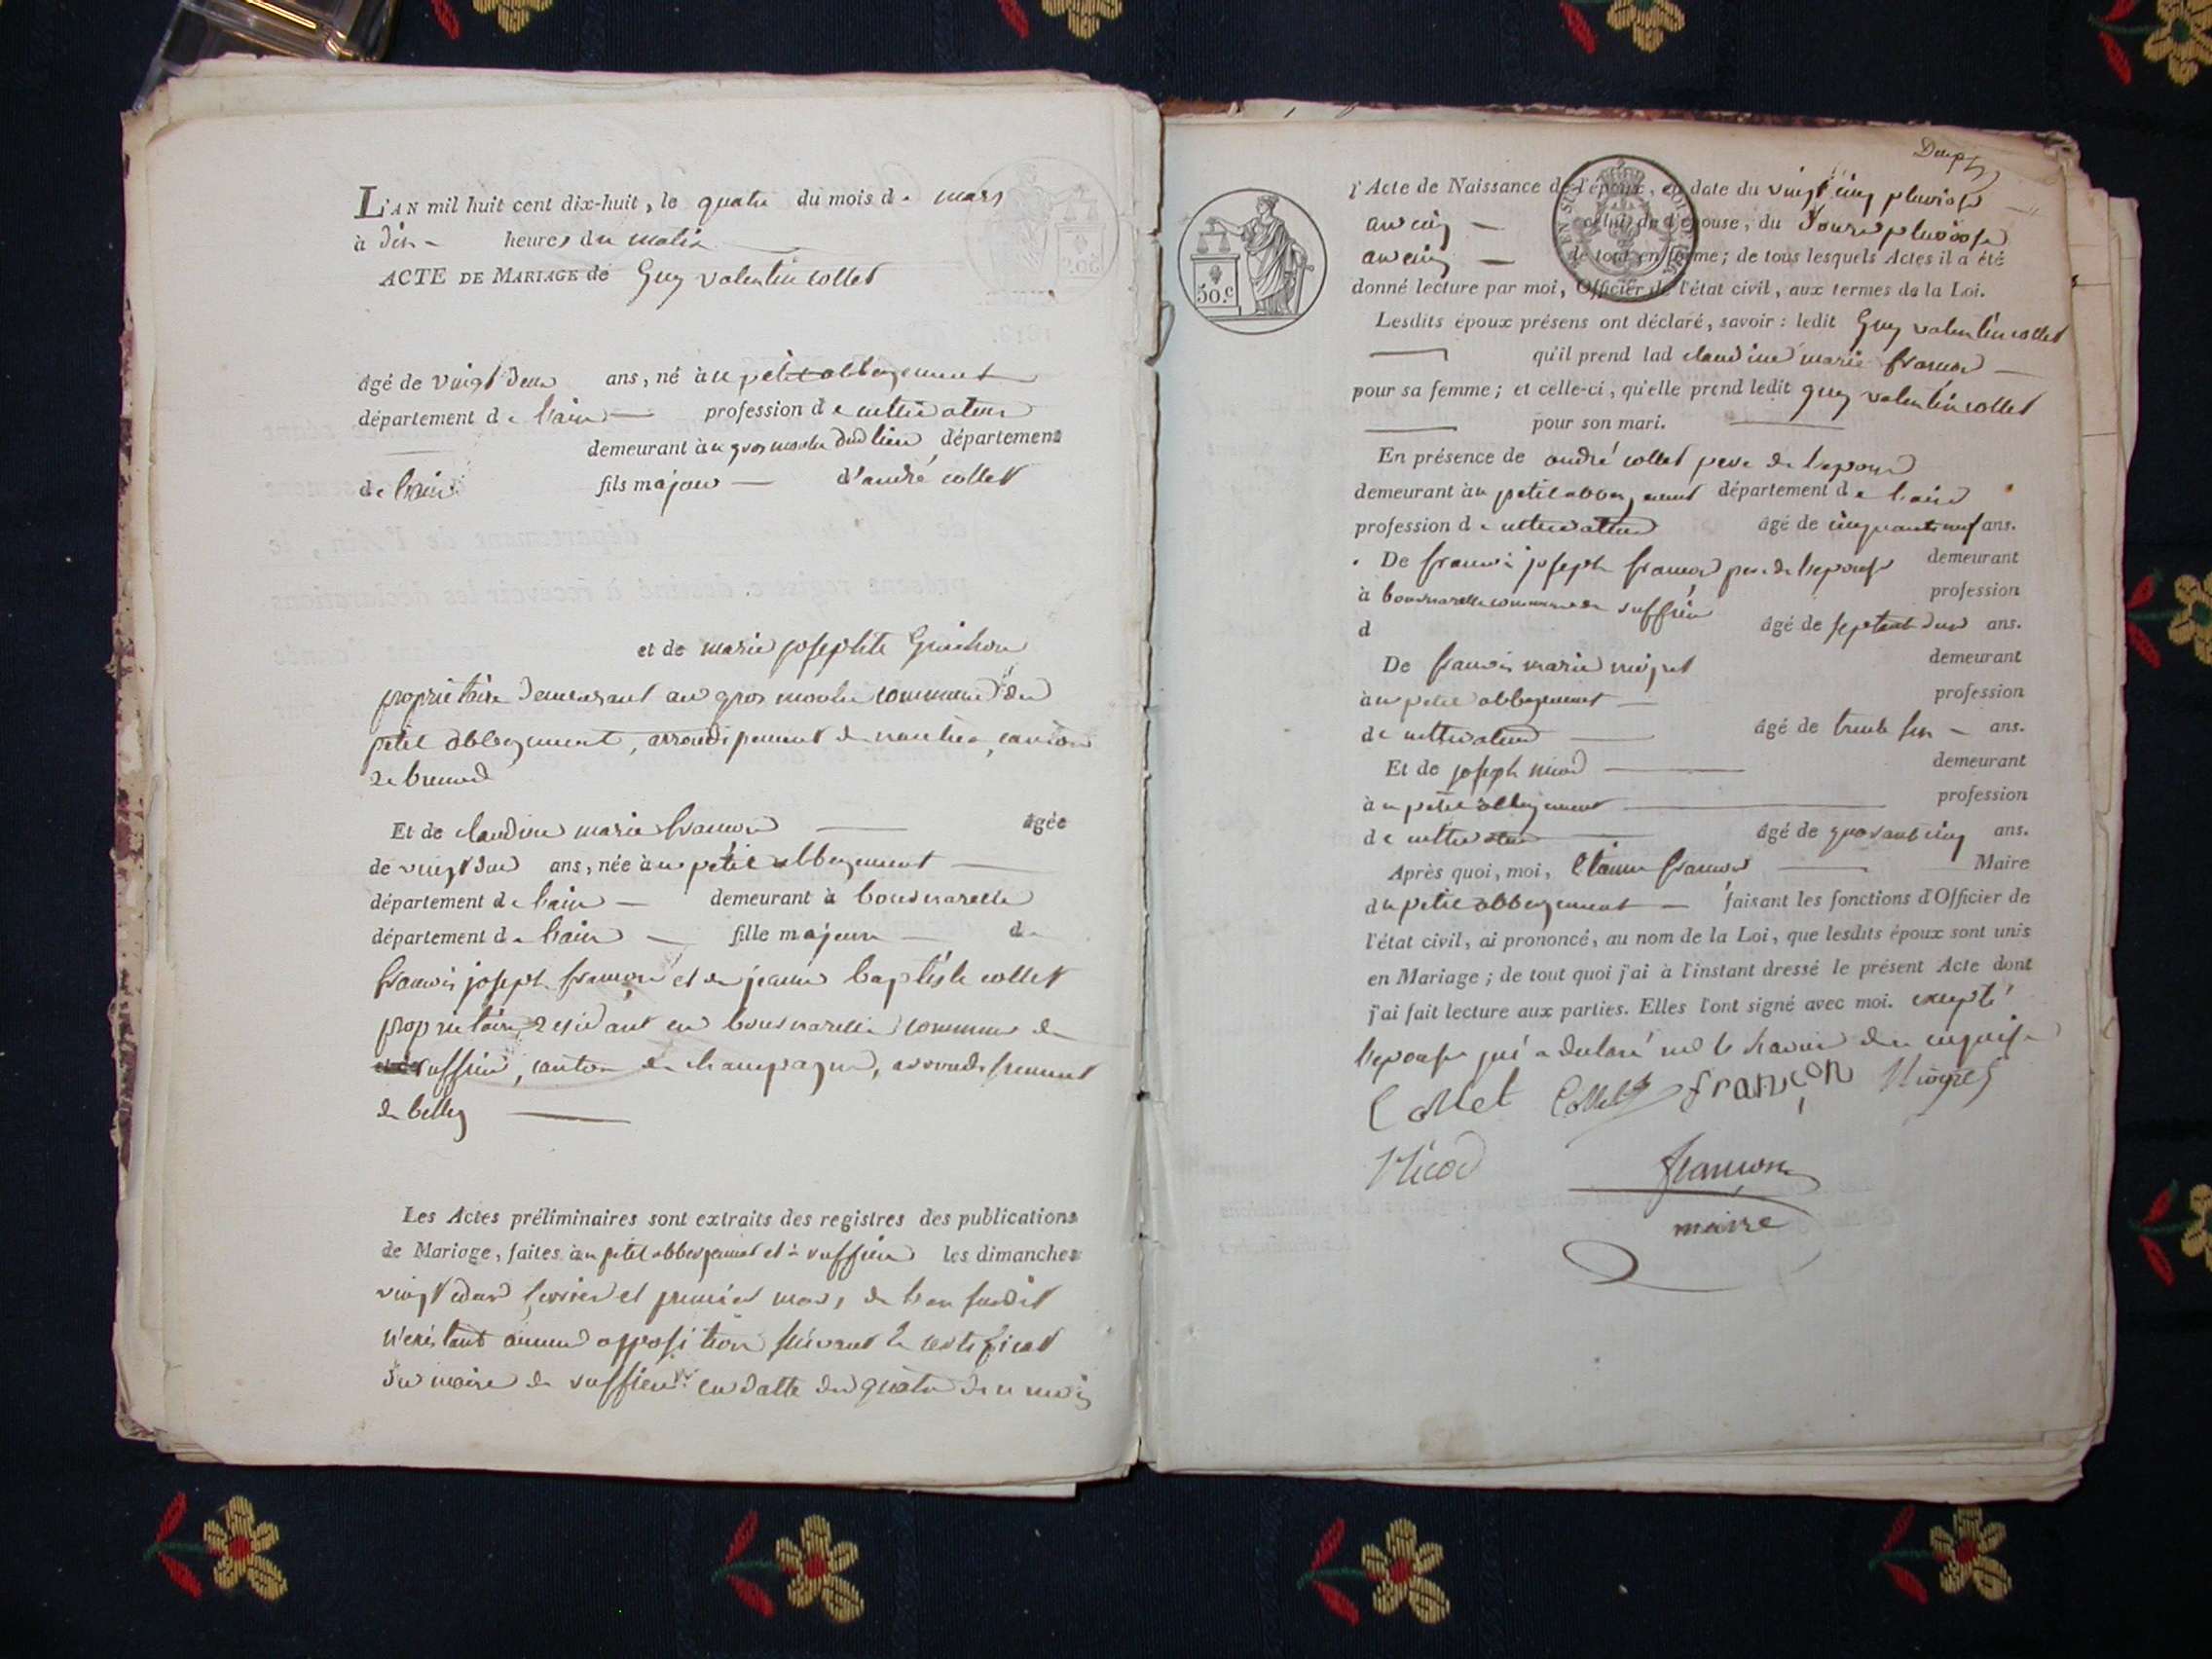 L'AN mil huit cent dix-huit, le quatre du mois de mars
à dix heures du matin
ACTE DE MARIAGE de Guy valentin collet
âgé de vingt deux ans, né au petit abbergement
département de l'ain profession de cultivateur
demeurant au gros moulin dud lieu département
de l'ain fils majeur d'andré collet
et de marie josephte Guichon
proprietaire demeurant au gros moulin commune du
petit abbergement, arrondissement de nantua, canton
de brenod
Et de claudine marie françon âgée
de vingt deux ans, née au petit abbergement
département de l'ain demeurant à
département de l'ain fille majeure de
françois joseph françon et de jeanne baptiste collet
proprietaires residant en commune de
ruffieu, canton de champagne, arrondissement
de belley
Les Actes préliminaires sont extraits des registres des publications
de Mariage, faites au petit abbergement et à ruffieu les dimanches
vingt deux fevrier et premier mars, de l'an susdit
n'existant aucune opposition suivant le certificat
du maire de ruffieu en datte du quatre de ce mois
l'Acte de Naissance de l'époux, en date du vingt cinq pluviose
an cinq celui de l'épouse, du douze pluviose
an cinq le tout en forme; de tous lesquels Actes il a été
donné lecture par moi, Officier de l'état civil, aux termes de la Loi.
50.c
Lesdits époux présens ont déclaré, savoir: ledit Guy valentin collet
qu'il prend lad claudine marie françon
pour sa femme; et celle-ci, qu'elle prend ledit guy valentin collet
pour son mari.
En présence de andré collet pere de l'epoux
demeurant au petit abbergement département de l'ain
profession de cultivateur âgé de cinquante neuf ans.
De françois joseph françon pere de l'epouse demeurant
à commune de ruffieu profession
d âgé de septante deux ans.
De françois marie niogret demeurant
au petit abbergement profession
de cultivateur âgé de trente six ans.
Et de joseph nicod demeurant
au petit abbergement profession
de cultivateur âgé de quarante cinq ans.
Après quoi, moi, Etienne françon Maire
du petit abbergement faisant les fonctions d'Officier de
l'état civil, ai prononcé, au nom de la Loi, que lesdits époux sont unis
en Mariage; de tout quoi j'ai à l'instant dressé le présent Acte dont
j'ai fait lecture aux parties. Elles l'ont signé avec moi. excepté
l'epouse qui a declaré ne le savoir de ce enquise
Collet Collet françon Niogret
Nicod françon
maire